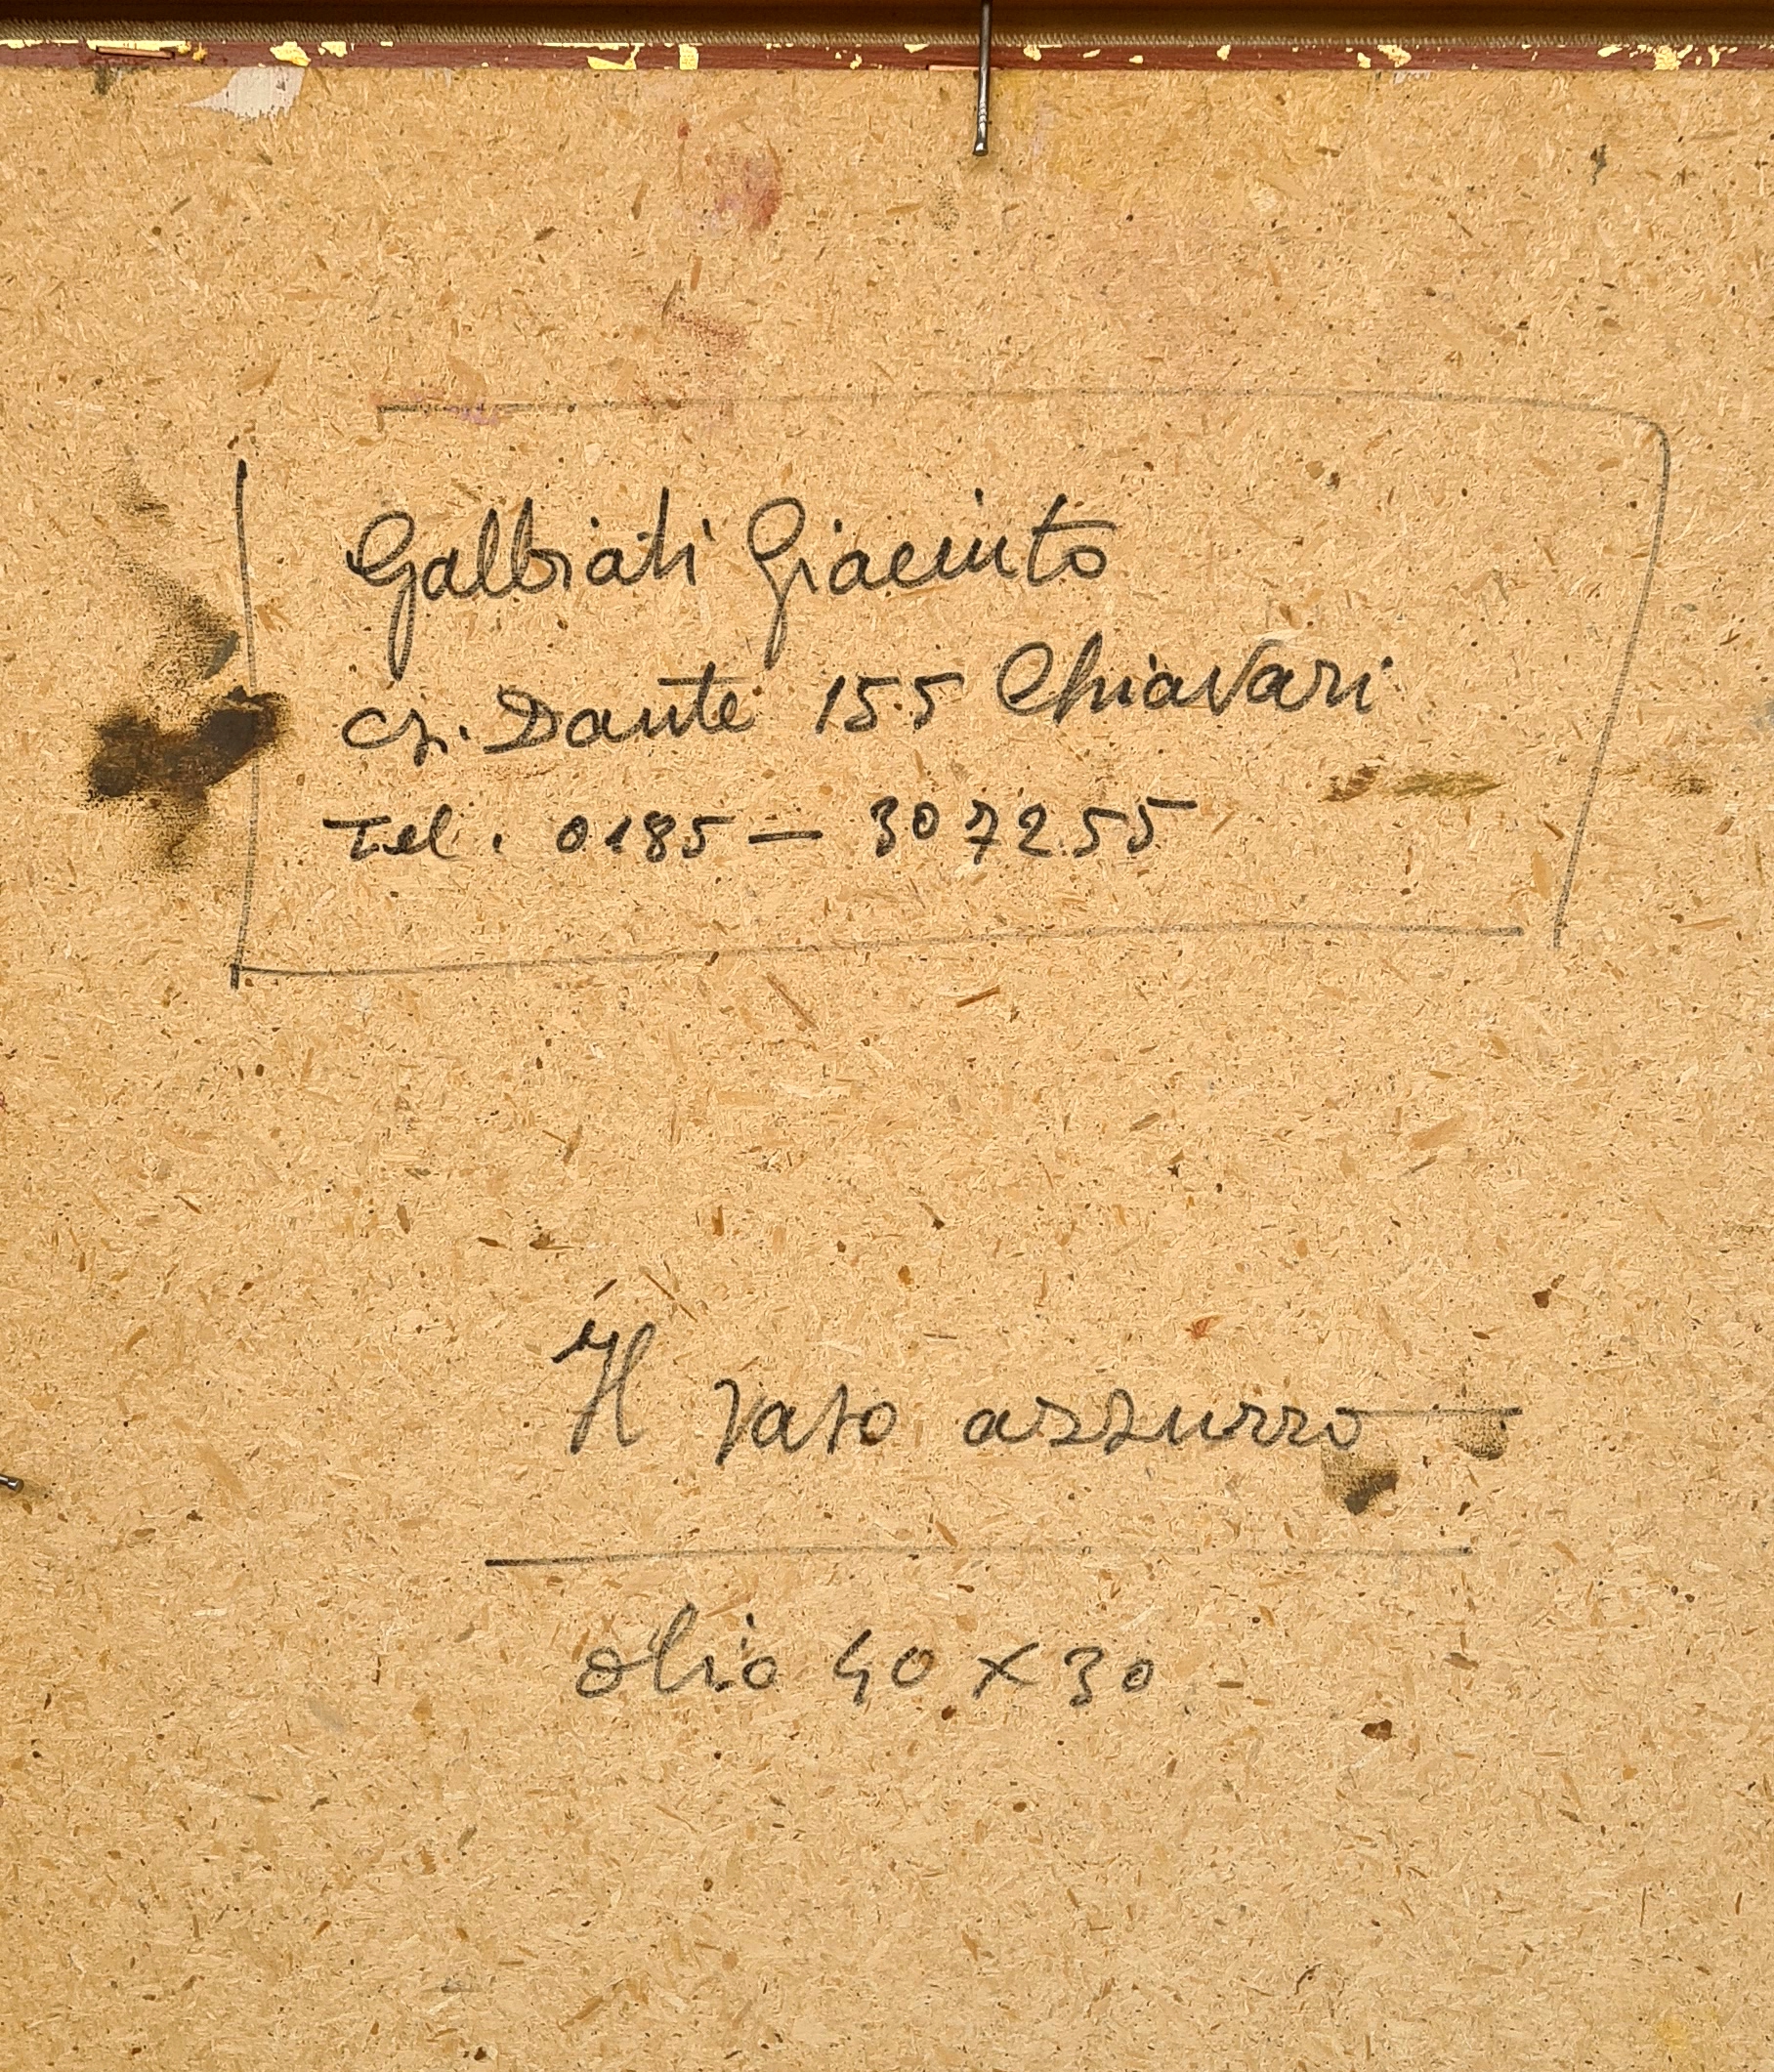 Galbiati Giacinto
Cs. Dante 155 Chiavari
Tel. 0185 — 307255
Il vaso azzurro
olio 40 x 30